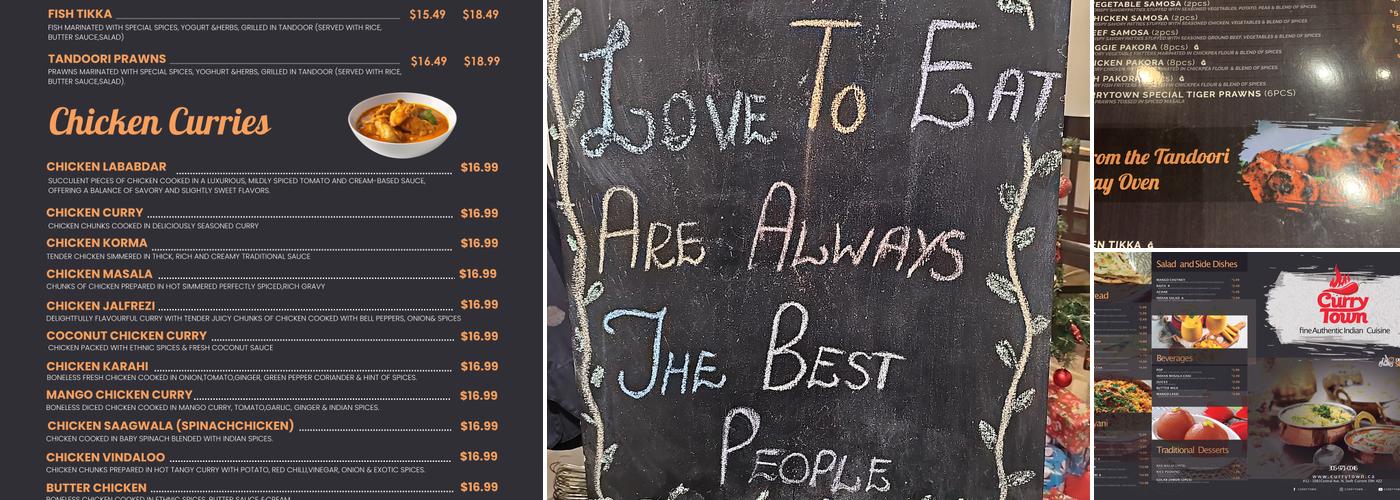 FISH TIKKA $15.49 $18.49
FISH MARINATED WITH SPECIAL SPICES, YOGURT &HERBS, GRILLED IN TANDOOR (SERVED WITH RICE,
BUTTER SAUCE,SALAD)
TANDOORI PRAWNS $16.49 $18.99
PRAWNS MARINATED WITH SPECIAL SPICES, YOGHURT &HERBS, GRILLED IN TANDOOR (SERVED WITH RICE,
BUTTER SAUCE,SALAD).
Chicken Curries
CHICKEN LABABDAR $16.99
SUCCULENT PIECES OF CHICKEN COOKED IN A LUXURIOUS, MILDLY SPICED TOMATO AND CREAM-BASED SAUCE,
OFFERING A BALANCE OF SAVORY AND SLIGHTLY SWEET FLAVORS.
CHICKEN CURRY $16.99
CHICKEN CHUNKS COOKED IN DELICIOUSLY SEASONED CURRY
CHICKEN KORMA $16.99
TENDER CHICKEN SIMMERED IN THICK, RICH AND CREAMY TRADITIONAL SAUCE
CHICKEN MASALA $16.99
CHUNKS OF CHICKEN PREPARED IN HOT SIMMERED PERFECTLY SPICED,RICH GRAVY
CHICKEN JALFREZI $16.99
DELIGHTFULLY FLAVOURFUL CURRY WITH TENDER JUICY CHUNKS OF CHICKEN COOKED WITH BELL PEPPERS, ONION& SPICES
COCONUT CHICKEN CURRY $16.99
CHICKEN PACKED WITH ETHNIC SPICES & FRESH COCONUT SAUCE
CHICKEN KARAHI $16.99
BONELESS FRESH CHICKEN COOKED IN ONION,TOMATO,GINGER, GREEN PEPPER CORIANDER & HINT OF SPICES.
MANGO CHICKEN CURRY $16.99
BONELESS DICED CHICKEN COOKED IN MANGO CURRY, TOMATO,GARLIC, GINGER & INDIAN SPICES.
CHICKEN SAAGWALA (SPINACHCHICKEN) $16.99
CHICKEN COOKED IN BABY SPINACH BLENDED WITH INDIAN SPICES.
CHICKEN VINDALOO $16.99
CHICKEN CHUNKS PREPARED IN HOT TANGY CURRY WITH POTATO, RED CHILLI,VINEGAR, ONION & EXOTIC SPICES.
BUTTER CHICKEN $16.99
LOVE TO EAT
ARE ALWAYS
THE BEST
PEOPLE
EGETABLE SAMOSA (2pcs)
CHICKEN SAMOSA (2pcs)
EEF SAMOSA (2pcs)
GGIE PAKORA (8pcs)
CKEN PAKORA (8pcs)
H PAKORA (8pcs)
RRYTOWN SPECIAL TIGER PRAWNS (6PCS)
PRAWNS TOSSED IN SPICED MASALA
rom the Tandoori
ay Oven
EN TIKKA
Salad and Side Dishes
MANGO CHUTNEY
RAITA
ACHAR
INDIAN SALAD
ead
Beverages
POP
INDIAN MASALA CHAI
JUICES
BUTTER MILK
MANGO LASSI
yani
Traditional Desserts
Curry
Town
fine Authentic Indian Cuisine
www.currytown.ca